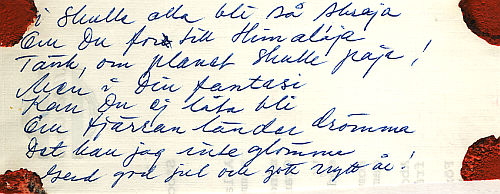 i skulle alla bli så skraja
Om Du for till Himalaja
Tänk, om planet skulle paja!
Men i Din fantasi
Kan Du ej låta bli
Om fjärran länder drömma
Det kan jag inte glömma
god jul och gott nytt år!